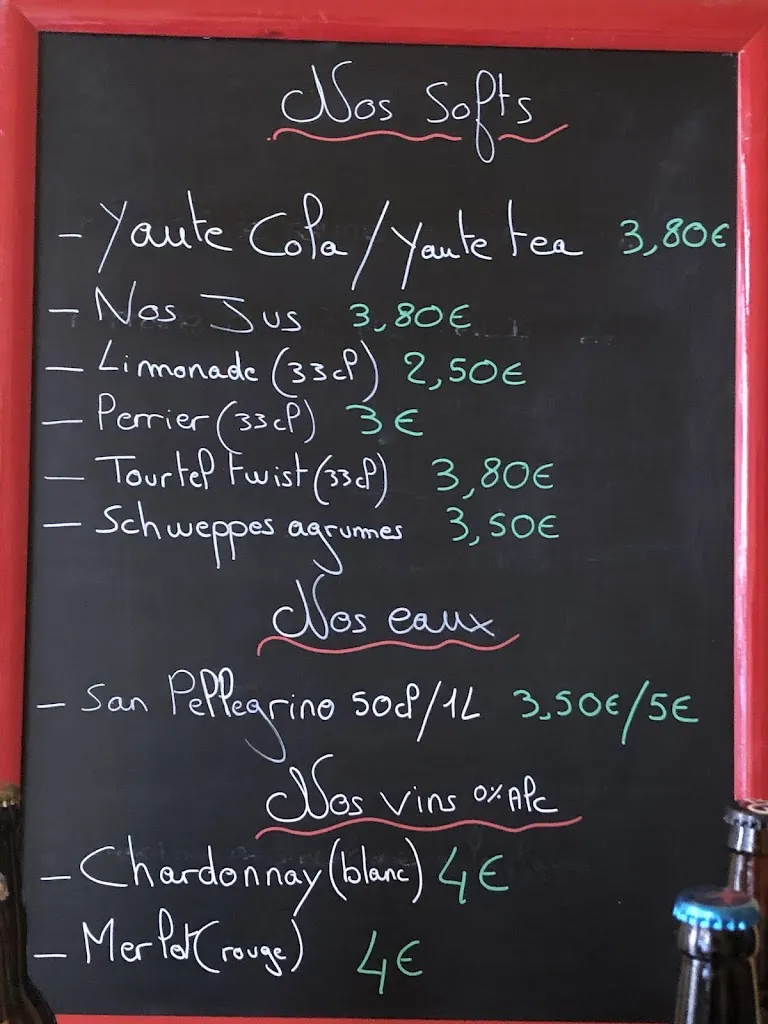 Nos Softs
- Yaute Cola/Yaute tea 3,80€
- Nos Jus 3,80€
- Limonade (33cl) 2,50€
- Perrier (33cl) 3€
- Tourtel twist (33cl) 3,80€
- Schweppes agrumes 3,50€
Nos eaux
- San Pellegrino 50cl/1L 3,50€/5€
Nos vins 0% Alc
- Chardonnay (blanc) 4€
- Merlot (rouge) 4€